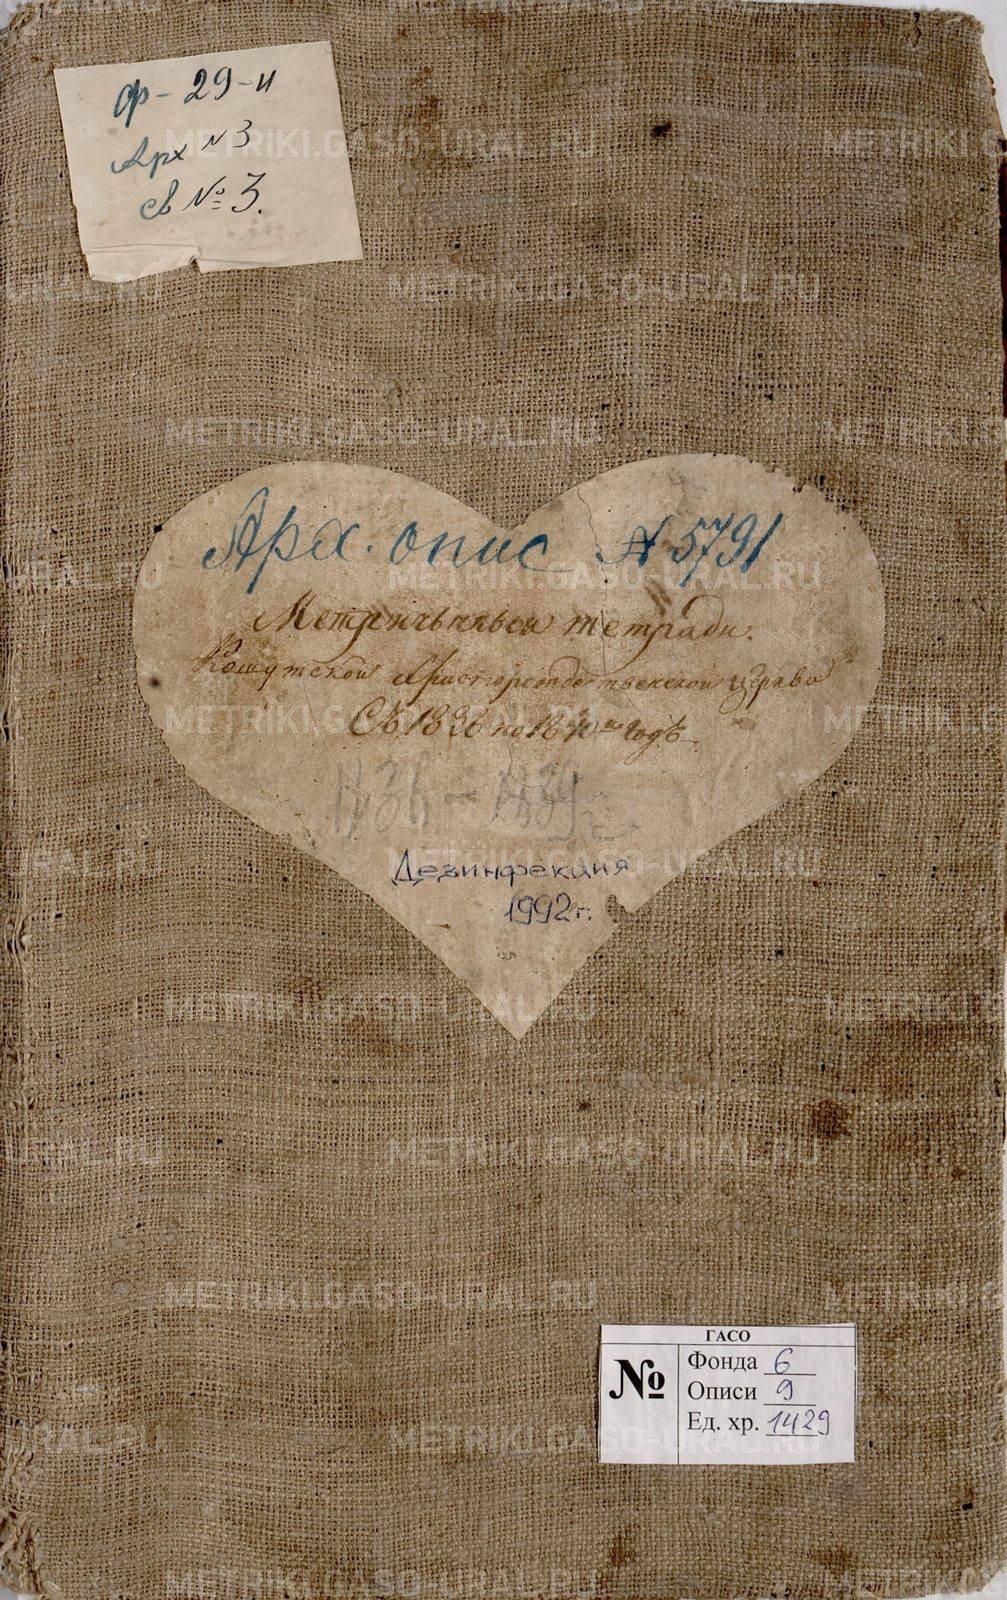 Ф - 29-и
Арх № 3
св № 3.
Арх. опис № 5791
Метричныя тетради.
Кошутской Христорождественской церкви
Съ 1836 по 1840 годъ
1836 - 1839
Дезинфекция
1992 г.
ГАСО
№
Фонда 6
Описи 9
Ед. хр. 1429
METRIKI.GASO-URAL.RU